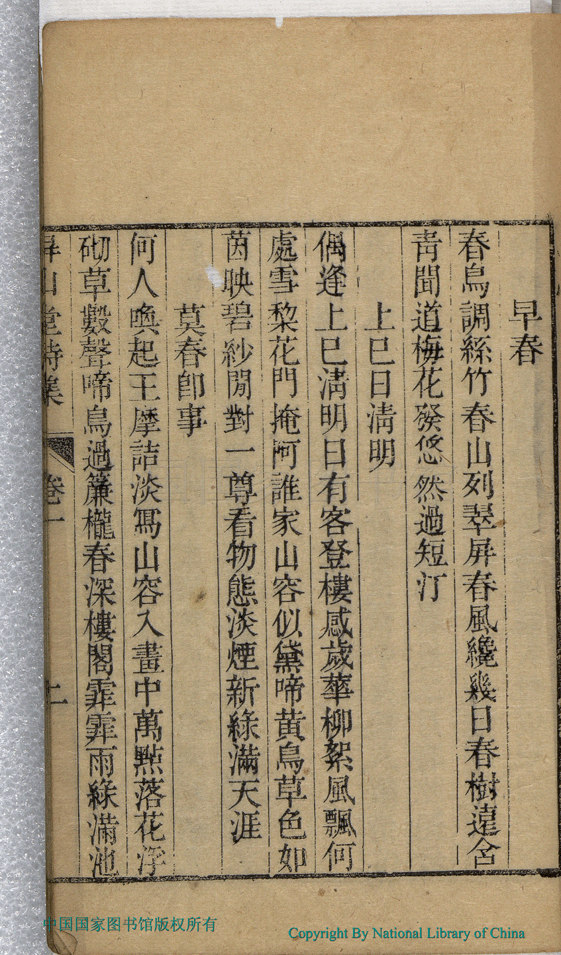 早春
春鳥調絲竹春山列翠屏春風纔幾日春樹遠含
青聞道梅花發悠然過短汀
上巳日淸明
偶逢上巳淸明日有客登樓感歲華柳絮風飄何
處雪棃花門掩阿誰家山容似黛啼黃鳥草色如
茵映碧紗閒對一尊看物態淡煙新綠滿天涯
莫春卽事
何人喚起王摩詰淡寫山容入畫中萬點落花浮
砌草數聲啼鳥過簾櫳春深樓閣霏霏雨綠滿池
屏山堂詩集 卷一
中国国家图书馆版权所有
Copyright By National Library of China